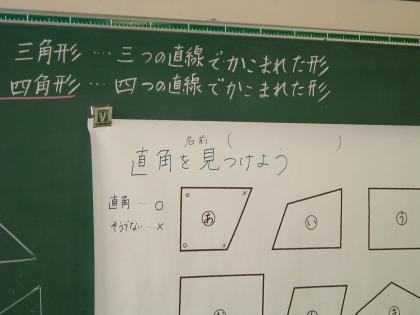 三角形…三つの直線でかこまれた形
四角形…四つの直線でかこまれた形
名前（　　　　）
直角を見つけよう
直角…○
そうでない…×
あ
い
う